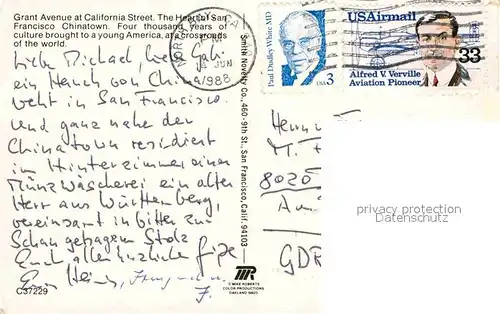 Grant Avenue at California Street. The Heart of San
Francisco Chinatown. Four thousand years of
culture brought to a young America, at a crossroads
of the world.
Liebe Michael, liebe Gabi
ein Hauch von China
weht in San Francisco.
Und ganz nahe der
Chinatown residiert
im Hinterzimmer einer
Münzwäscherei ein alter
Herr aus Württemberg,
vereinsamt in bitter zur
Schau getragenem Stolz
Euch allen herzliche Grüße
Euer Heinz,
C37229
JUN
1988
Smith Novelty Co., 460-9th St., San Francisco, Calif. 94103
© MIKE ROBERTS
COLOR PRODUCTIONS
OAKLAND 94623
Paul Dudley White MD
USA 3
USAirmail
33
Alfred V. Verville
Aviation Pioneer
Herrn
M.
8020
GDR
privacy protection
www.oldthing.com